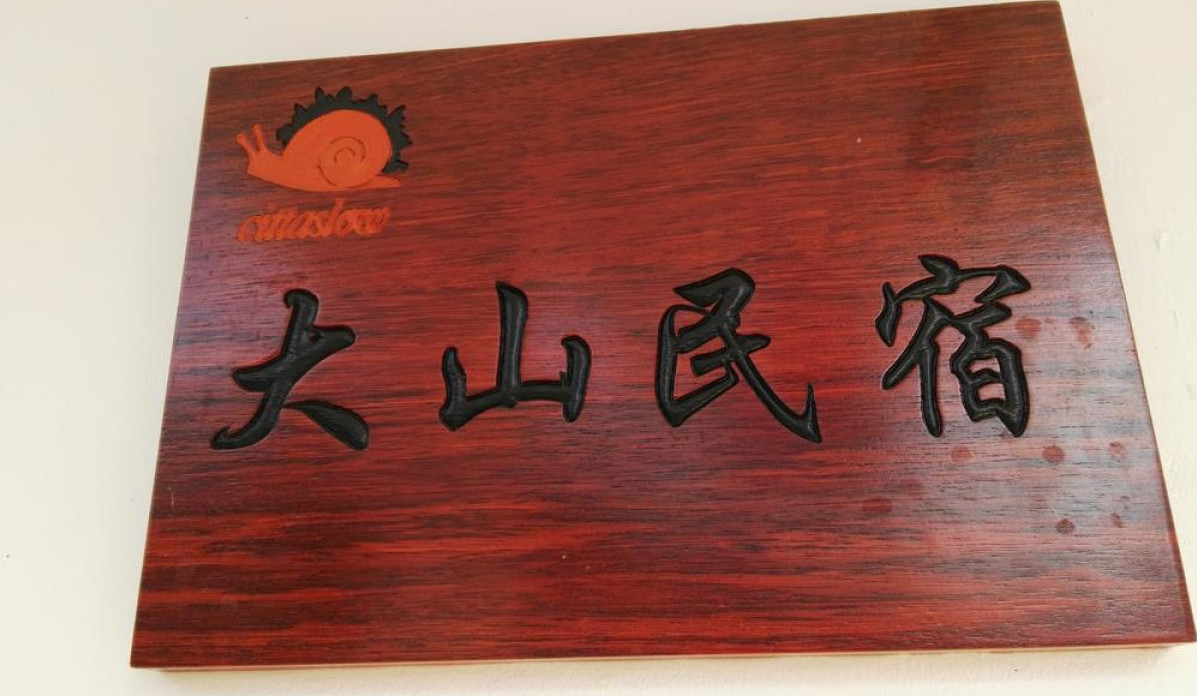 cittaslow
大山民宿